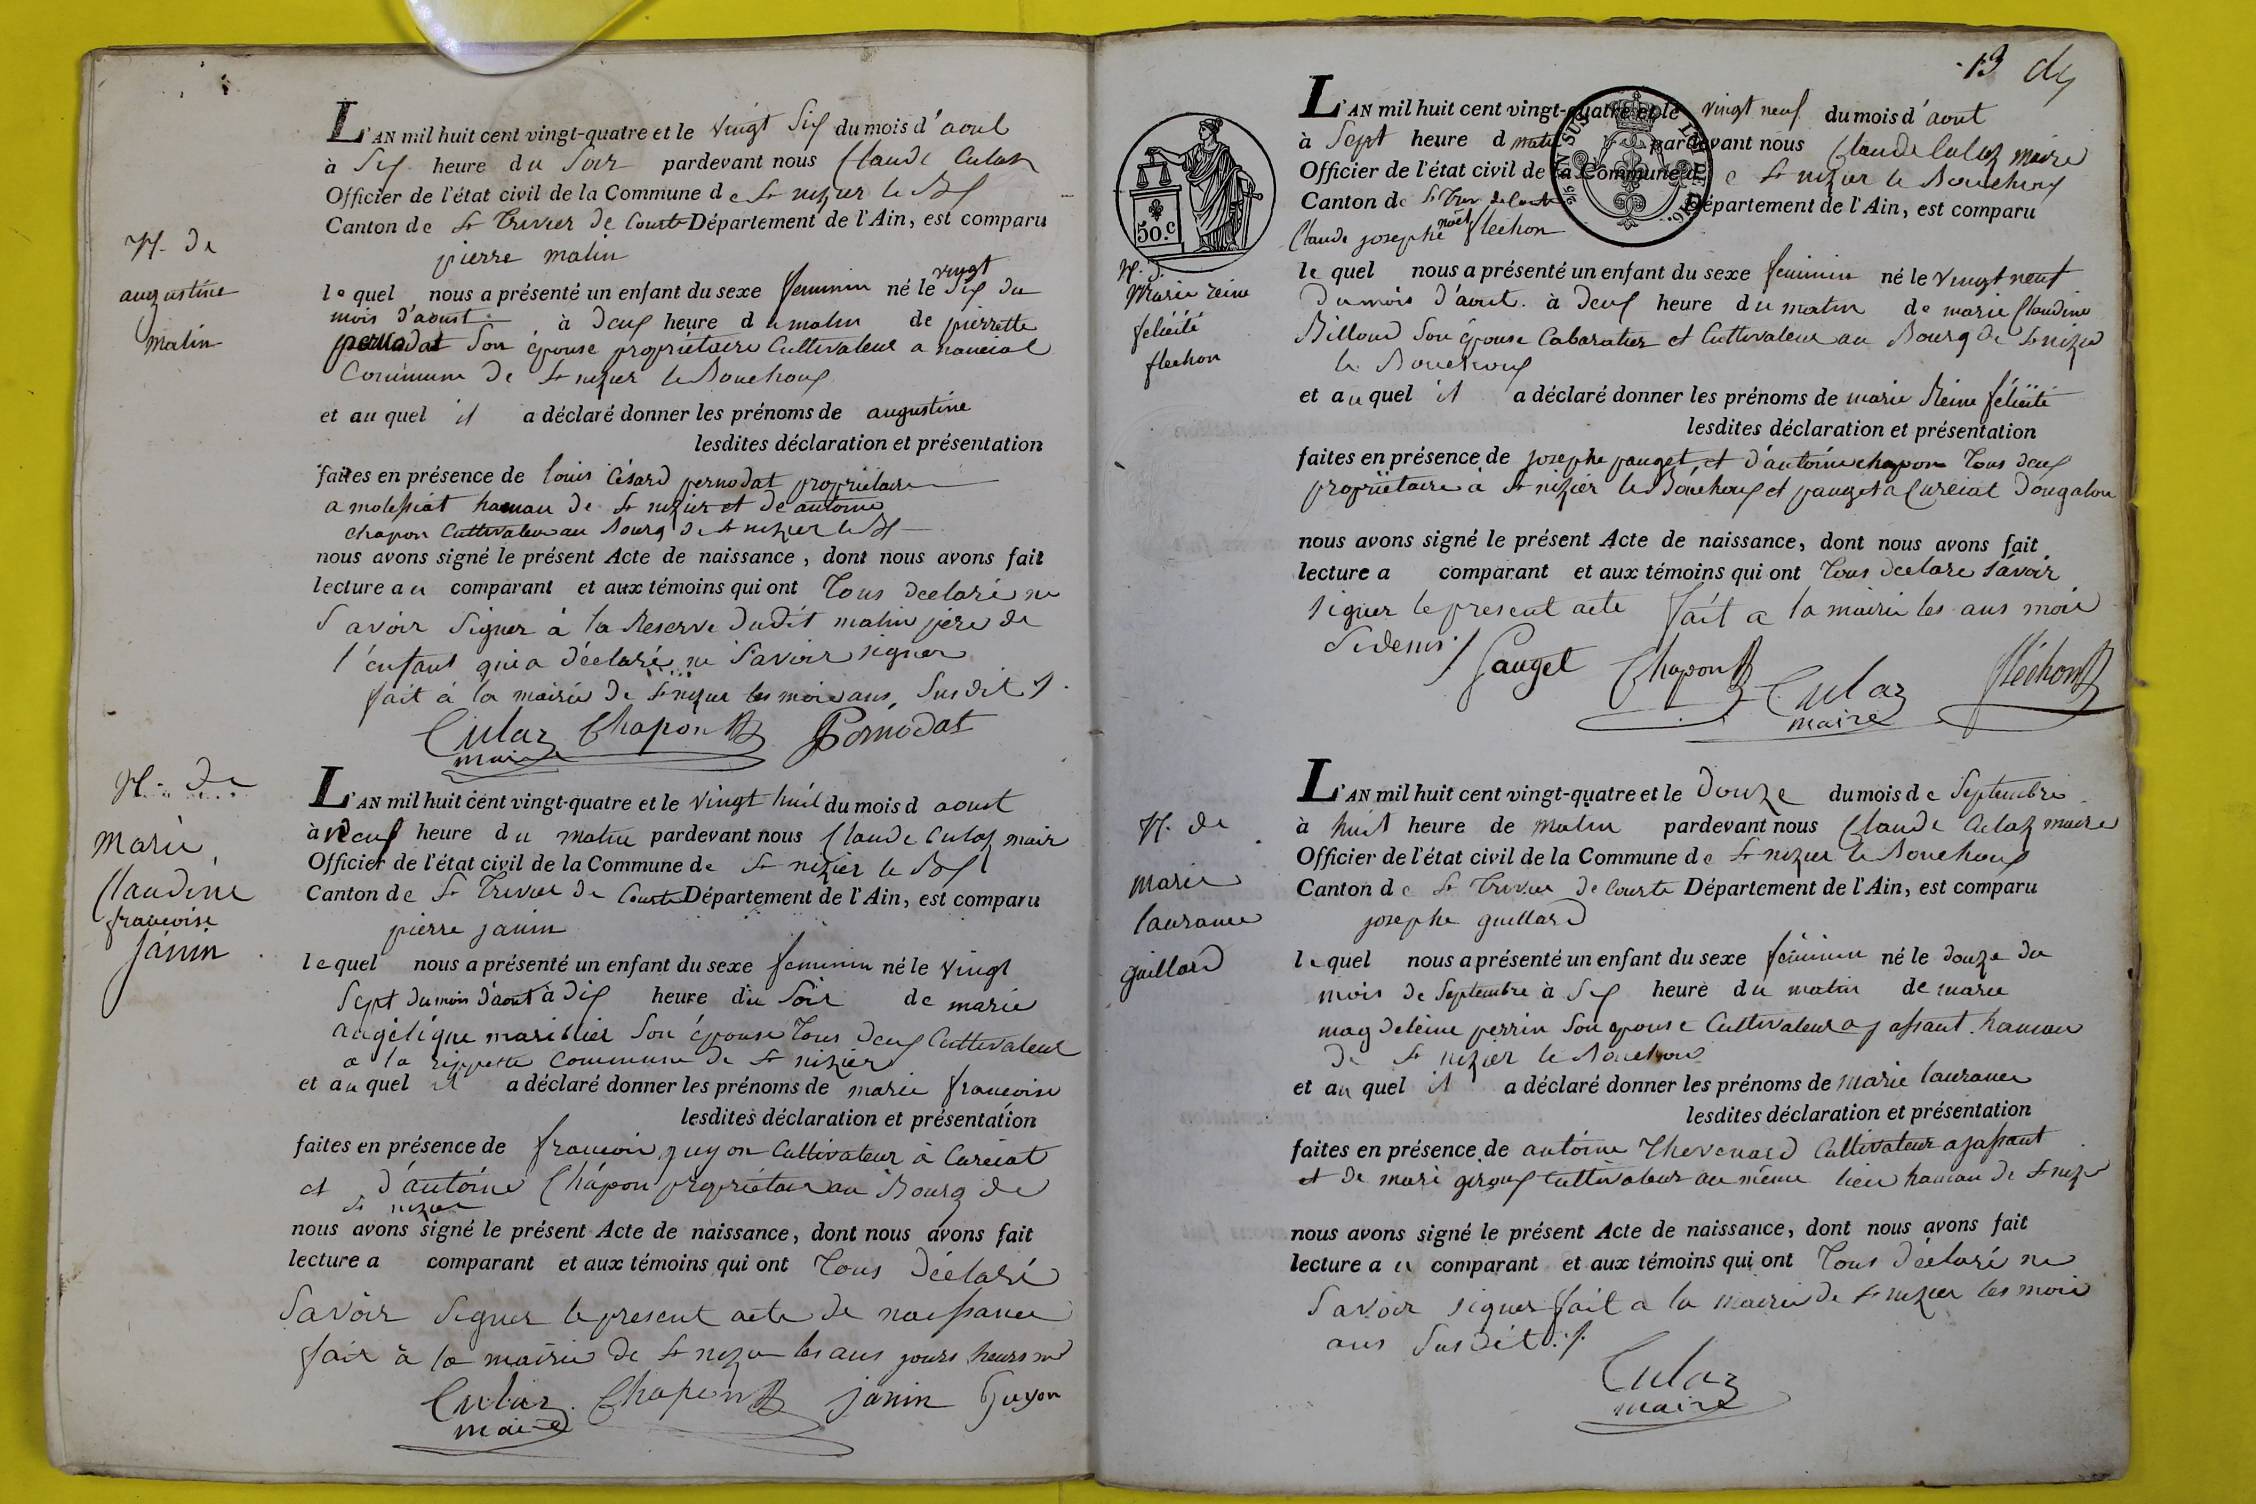 N. de
augustine
Matin
L'AN mil huit cent vingt-quatre et le vingt Six du mois d'aout
à Six heure du Soir pardevant nous Claude Culaz
Officier de l'état civil de la Commune de St nizier le Bx
Canton de St Trivier de Courte Département de l'Ain, est comparu
pierre matin
lequel nous a présenté un enfant du sexe feminin né le vingt Six du
mois d'aoust à deux heure du matin de pierrette
pernodat Son épouse propriétaire Cultivateur a
Commune de St nizier le Bouchoux
et auquel il a déclaré donner les prénoms de augustine
lesdites déclaration et présentation
faites en présence de louis Césard pernodat propriétaire
a molessiat hamau de St nizier et de antoine
chapon Cultivateur au Bourg de St nizier le Bx
nous avons signé le présent Acte de naissance, dont nous avons fait
lecture au comparant et aux témoins qui ont Tous declaré ne
Savoir Signer à la Reserve dudit matin père de
l'enfant qui a déclaré ne Savoir signer
fait à la mairie de St nizier les mois ans Susdit
Culaz Chapon Pernodat
maire
N. de
Marie
Claudine
francoise
Janin
L'AN mil huit cent vingt-quatre et le vingt huit du mois d aoust
à Neuf heure du matin pardevant nous Claude Culaz mair
Officier de l'état civil de la Commune de St nizier le Bx
Canton de St Trivier de Courte Département de l'Ain, est comparu
pierre janin
lequel nous a présenté un enfant du sexe feminin né le vingt
Sept du mois d'aout à dix heure du Soir de marie
angélique mariblier Son épouse Tous deux Cultivateur
a la rippette Commune de St nizier
et auquel il a déclaré donner les prénoms de marie francoise
lesdites déclaration et présentation
faites en présence de francois guyon Cultivateur à Curciat
et d'antoine Chapon propriétaire au Bourg de
St nizier
nous avons signé le présent Acte de naissance, dont nous avons fait
lecture a comparant et aux témoins qui ont Tous déclaré
Savoir Signer le present acte de naissance
fait à la mairie de St nizier les ans jours heurs
Culaz Chapon janin Guyon
maire
13
50.c
N. d.
Marie reine
felicité
flechon
L'AN mil huit cent vingt-quatre et le vingt neuf du mois d'aout
à Sept heure d matin pardevant nous Claude Culaz maire
Officier de l'état civil de la Commune de St nizier le Bouchoux
Canton de St Triv de Courte Département de l'Ain, est comparu
Claude josephe noël flechon
lequel nous a présenté un enfant du sexe feminin né le vingt neuf
du mois d'aout à deux heure du matin de marie Claudine
Billoud Son épouse Cabaratier et Cultivateur au Bourg de St nizier
le Bouchoux
et auquel il a déclaré donner les prénoms de marie Reine félicité
lesdites déclaration et présentation
faites en présence de josephe pauget, et d'antoine chapon Tous deux
propriétaire à St nizier le Bouchoux et pauget a Curciat Dongalon
nous avons signé le présent Acte de naissance, dont nous avons fait
lecture a comparant et aux témoins qui ont Tous declare Savoir
Signer le present acte fait a la mairie les ans mois
Sidenis
Pauget Chapon Culaz flechon
maire
N. de
marie
laurance
guillard
L'AN mil huit cent vingt-quatre et le Douze du mois de Septembre
à huit heure de matin pardevant nous Claude Culaz maire
Officier de l'état civil de la Commune de St nizier le Bouchoux
Canton de St Trivier de Courte Département de l'Ain, est comparu
josephe guillard
lequel nous a présenté un enfant du sexe féminin né le douze du
mois de Septembre à Six heure du matin de marie
magdeleine perrin Son epouse Cultivateur a jassant hamau
de St nizier le Bouchoux
et auquel il a déclaré donner les prénoms de marie laurance
lesdites déclaration et présentation
faites en présence de antoine Thevenard Cultivateur a jassant
et de marie giroux Cultivateur au même lieu hamau de St nizier
nous avons signé le présent Acte de naissance, dont nous avons fait
lecture au comparant et aux témoins qui ont Tous déclaré ne
Savoir signer fait a la mairie de St nizier les mois
ans Susdit
Culaz
maire